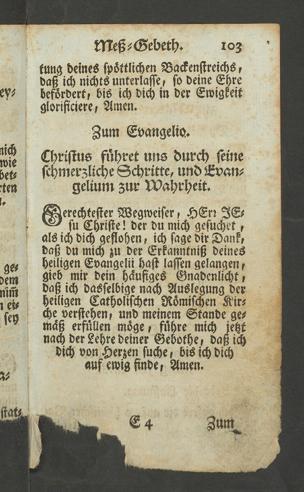 Meß-Gebeth. 103
tung deines spöttlichen Backenstreichs,
daß ich nichts unterlasse, so deine Ehre
befördert, bis ich dich in der Ewigkeit
glorificiere, Amen.
Zum Evangelio.
Christus führet uns durch seine
schmerzliche Schritte, und Evan-
gelium zur Wahrheit.
Gerechtester Wegweiser, HErr JE-
su Christe! der du mich gesuchet,
als ich dich geflohen, ich sage dir Dank,
daß du mich zu der Erkanntniß deines
heiligen Evangelii hast lassen gelangen,
gieb mir dein häufiges Gnadenlicht,
daß ich dasselbige nach Auslegung der
heiligen Catholischen Römischen Kir-
che verstehen, und meinem Stande ge-
mäß erfüllen möge, führe mich jetzt
nach der Lehre deiner Gebothe, daß ich
dich von Herzen suche, bis ich dich
auf ewig finde, Amen.
E 4 Zum
ey-
nich
wie
bet-
rten
ge-
dem
nim̅
n ei-
sey
stat-